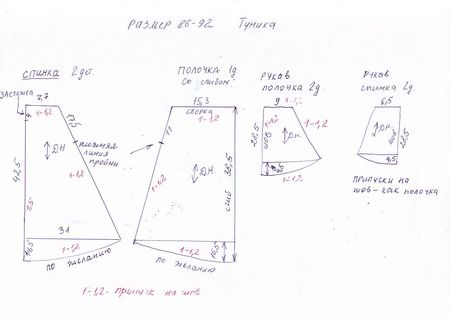 Размер 86-92 Туника
спинка 2дет.
застежка
7,7
1-1,2
17,5
нижняя линия проймы
ДН
42,5
1-1,2
31
1-1,2
по желанию
полочка 1д
со сгибом
15,3
сборка
1-1,2
11
ДН
1-1,2
38,5
сгиб
1-1,2
по желанию
рукав
полочка 2д.
9
1-1,2
1-1,2
шов
ДН.
28,5
1-1,2
рукав
спинка 2д.
6,5
28,5
шов
ДН.
припуски на
шов-как полочка
1-1,2- припуск на шов